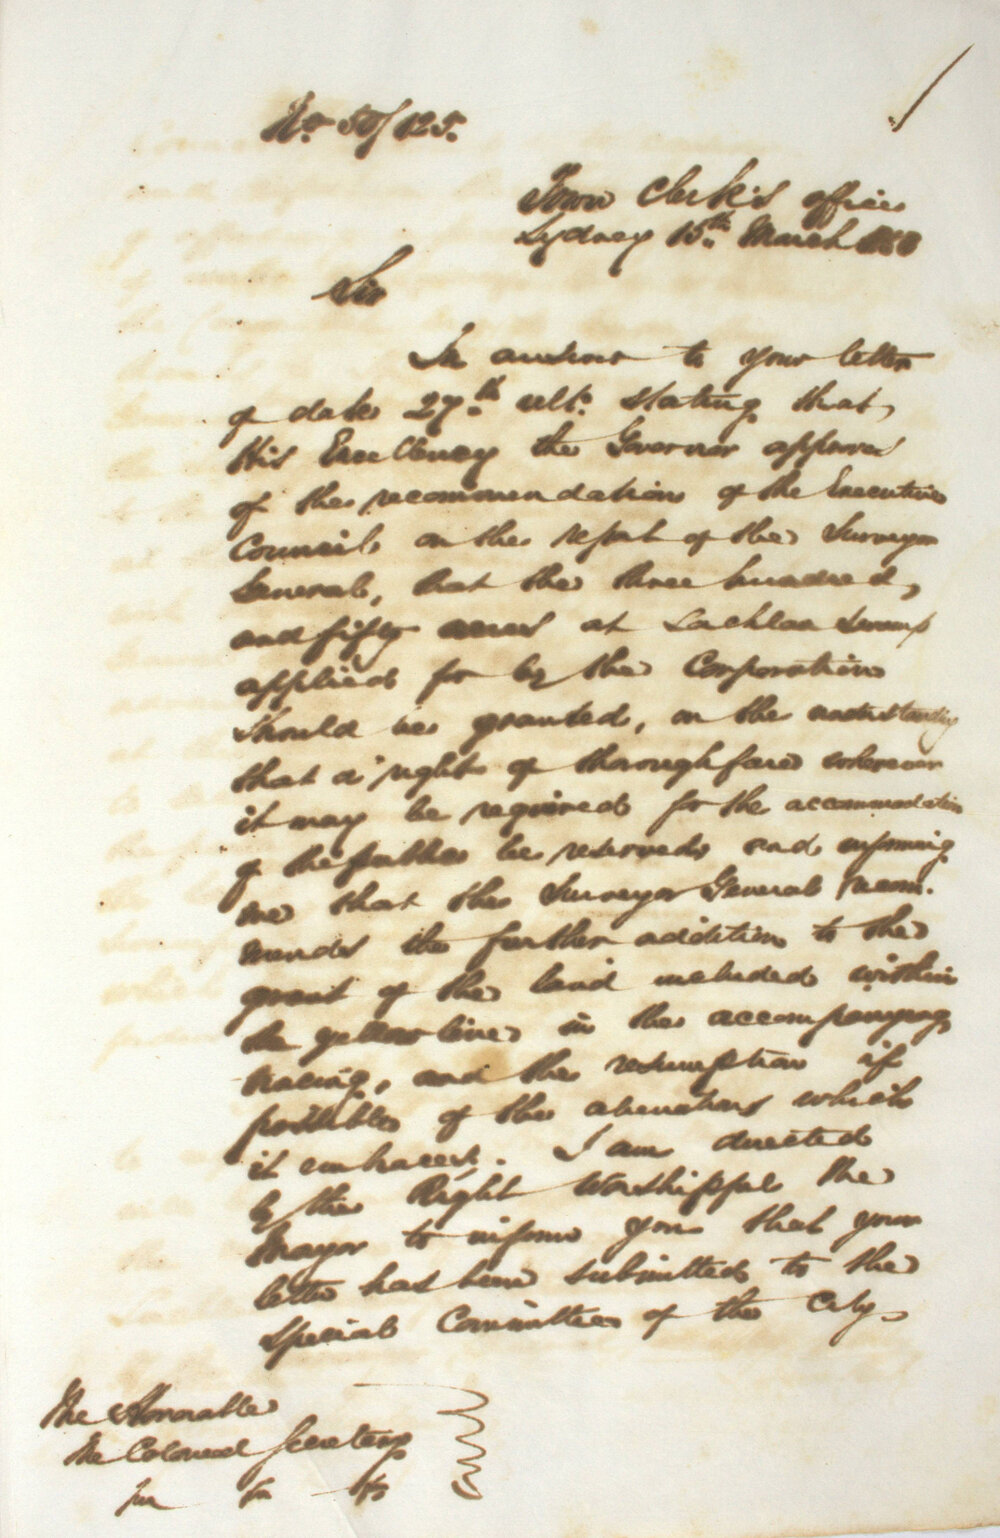 No. 50/125.
Town Clerk's office
Sydney 15th March 1850
Sir
In answer to your letter
of date 27th ult. stating that
His Excellency the Governor approves
of the recommendation of the Executive
Council, on the report of the Surveyor
General, that the three hundred,
and fifty acres at Lachlan Swamp
applied for by the Corporation
should be granted, on the understanding
that a right of thoroughfare wherever
it may be required for the accommodation
of the public be reserved, and informing
me that the Surveyor General recom-
mends the further addition to the
grant of the land included within
the yellow line in the accompanying
tracing, and the resumption if
possible of the alienations which
it embraces. I am directed
by the Right Worshipful the
Mayor to inform you that your
letter has been submitted to the
Special Committee of the City
The Honorable
The Colonial Secretary